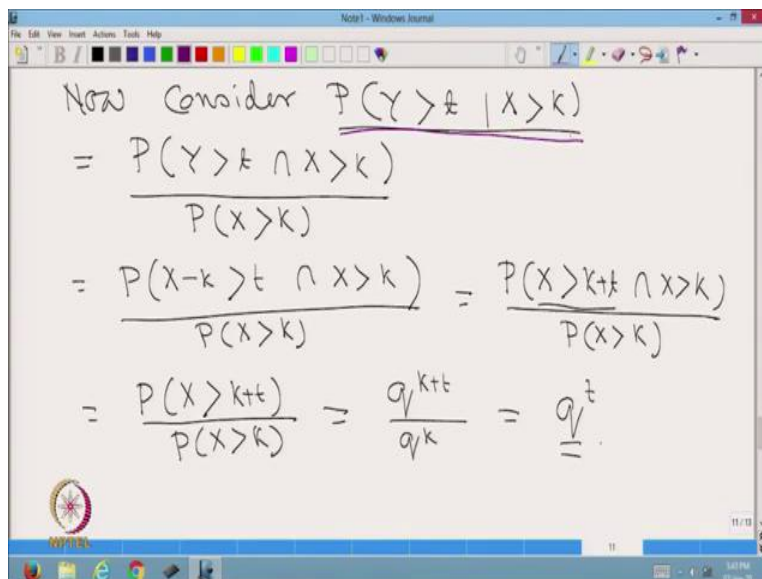 Note1 - Windows Journal
File Edit View Insert Actions Tools Help
B I
Now Consider P(Y>t | X>k)
= P(Y>t ∩ X>k) / P(X>k)
= P(X-k>t ∩ X>k) / P(X>k) = P(X>k+t ∩ X>k) / P(X>k)
= P(X>k+t) / P(X>k) = q^{k+t} / q^k = q^t.
NPTEL
11 / 13
11
5:43 PM